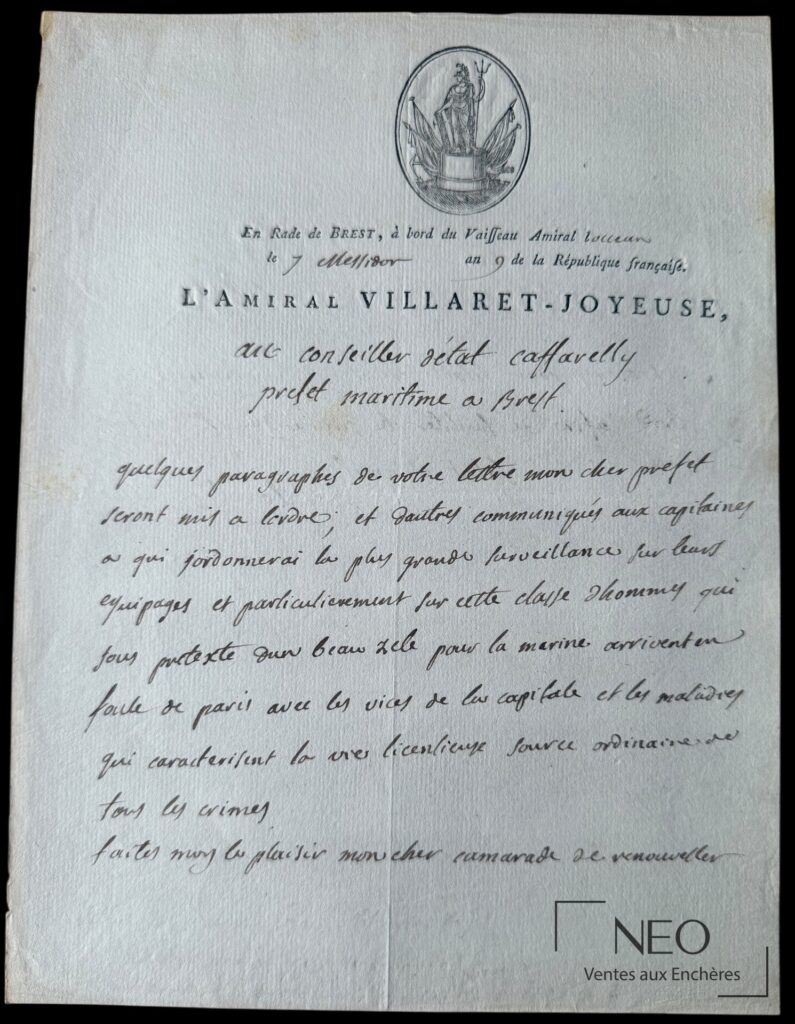 En Rade de BREST, à bord du Vaisseau Amiral locean
le 7 Messidor an 9 de la République française.
L'AMIRAL VILLARET-JOYEUSE,
au conseiller détat caffarelly
prefet maritime a Brest.
quelques paragraphes de votre lettre mon cher prefet
seront mis a lordre, et dautres communiqués aux capitaines
a qui jordonnerai la plus grande surveillance sur leurs
equipages et particulierement sur cette classe dhommes qui
sous pretexte dun beau zele pour la marine arrivent en
foule de paris avec les vices de la capitale et les maladies
qui caracterisent la vie licentieuse source ordinaire de
tous les crimes
faites moy le plaisir mon cher camarade de renouveller
NEO
Ventes aux Enchères